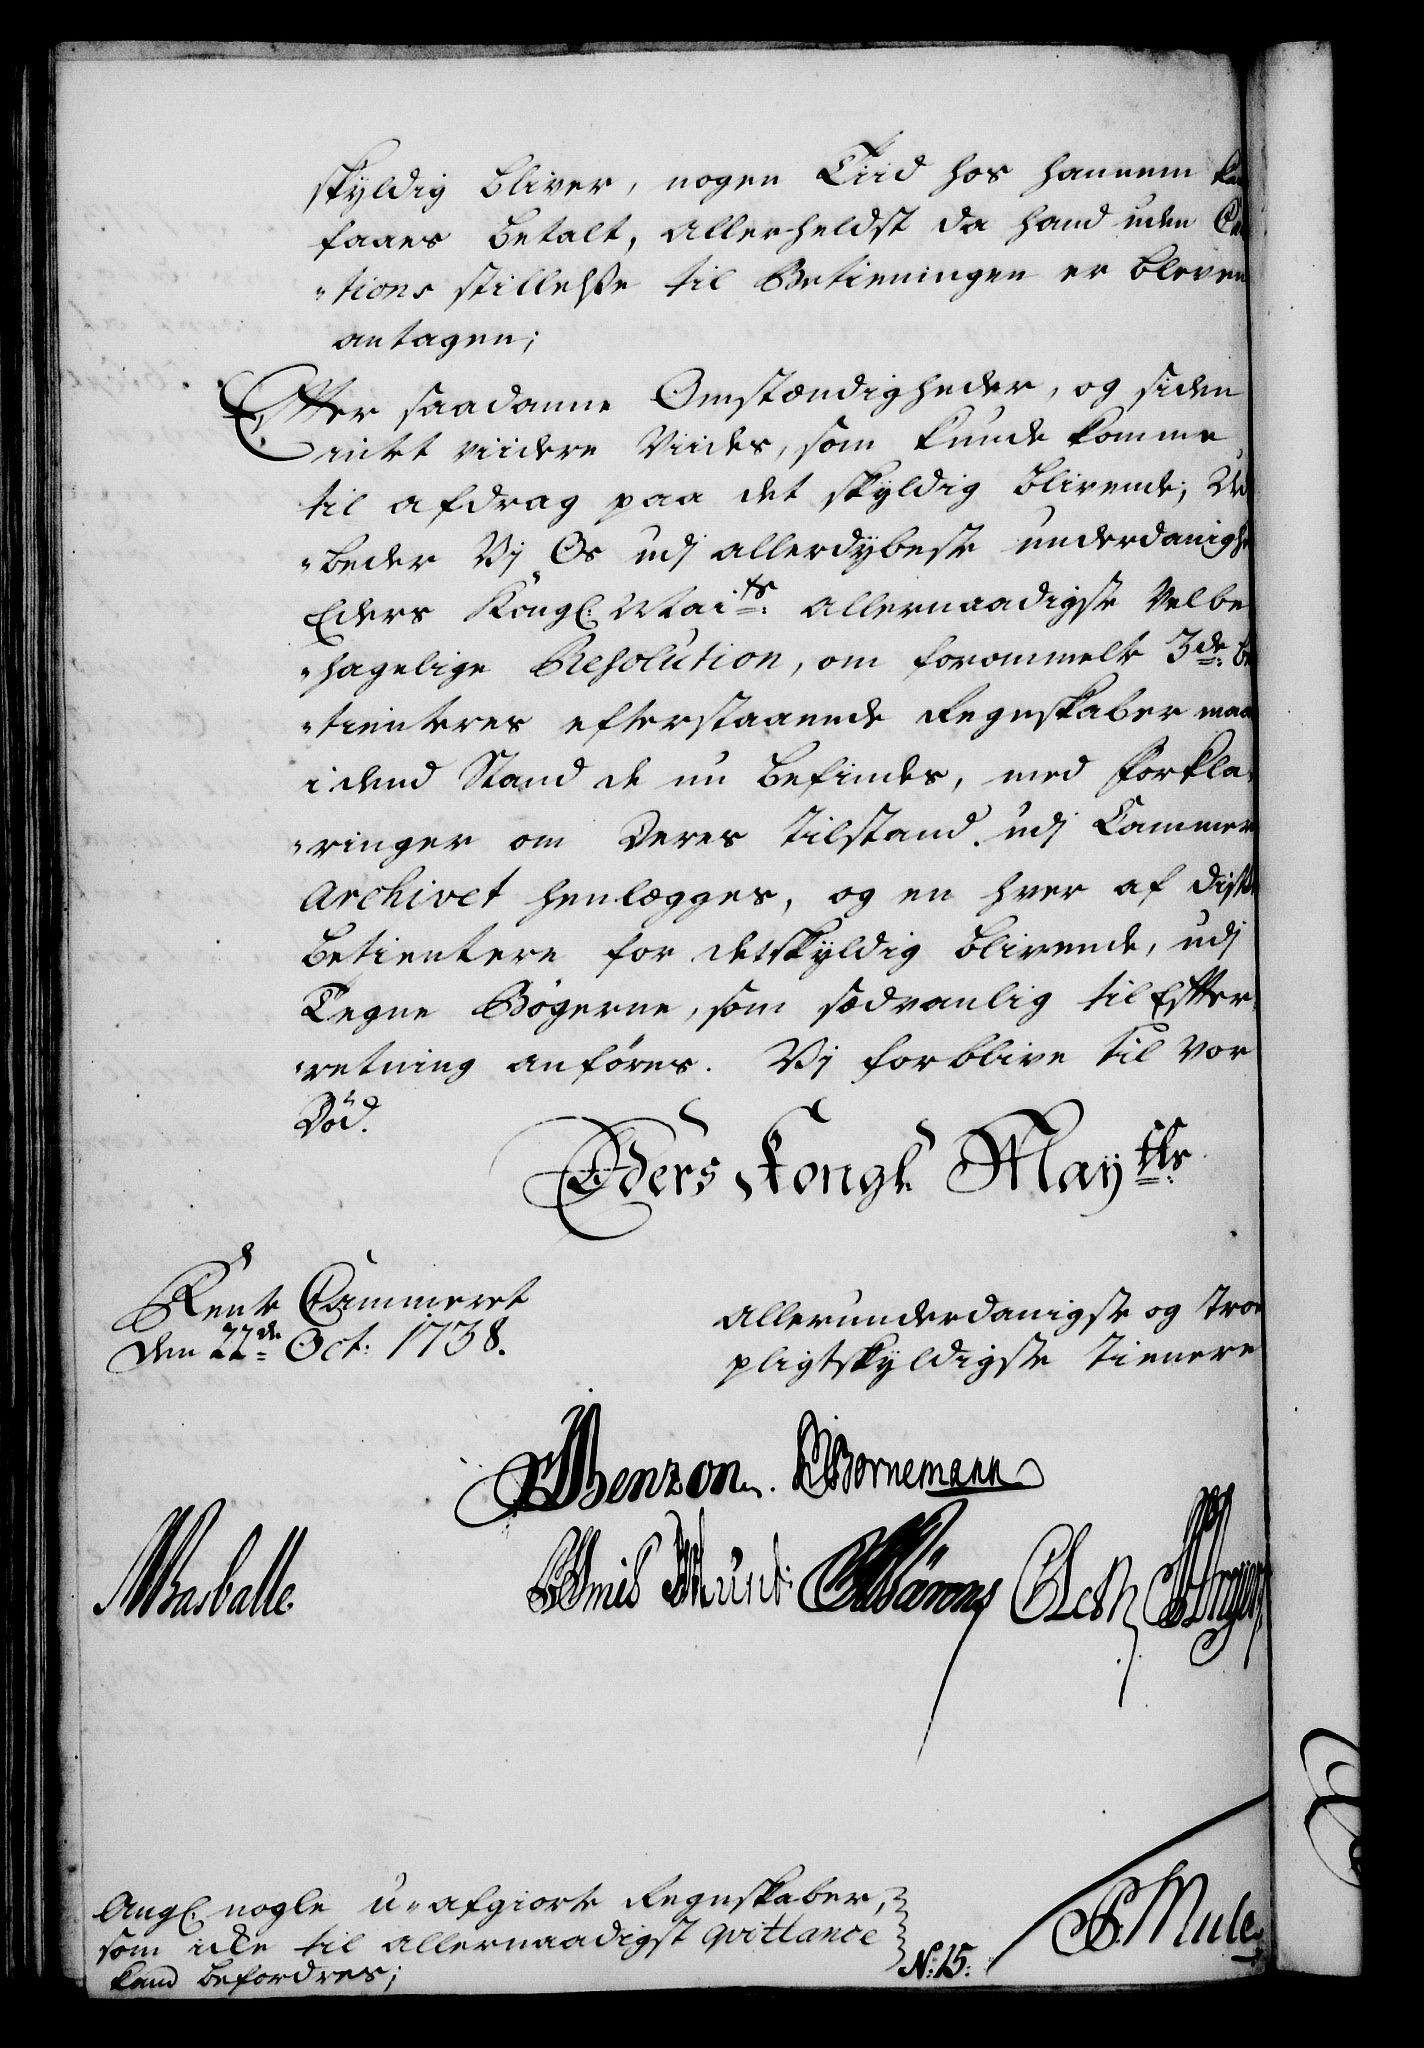 skyldig bliver, nogen Tiid hos hannem kan
faaes betalt, allerheldst da hand uden Cau
"tions stillelse til Betieningen er bleven
antagen;
Efter saadanne Omstændigheder, og siden
intet viidere Viides, som kunde komme
til afdrag paa det skyldig blivende; Ud
"beder Vj Os udj allerdybeste underdanighed
Eders Kongl: Maits: allernaadigste Velbe
"hagelige Resolution, om forommelte 3de: be
"tienteres efterstaaende Regnskaber maa
i dend Stand de nu befindes, med forkla
"ringer om deres tilstand udj Cammer
Archivet henlægges, og en hver af disse
betientere for det skyldig blivende, udj
Tegne Bøgerne, som sædvanlig til Efter
"retning anføres. Vj forblive til vor
Död.
Eders Kongl. Maytts
Rente Cammeret
den 22de Oct: 1738.
allerunderdanigste og troe
pligtskyldigste tienere
Benzon. Bornemann
Basballe. Munk
PMule
Angl. nogle u-afgiorte Regnskaber,
som icke til allernaadigst qvittance
kand befordres;
No: 15: